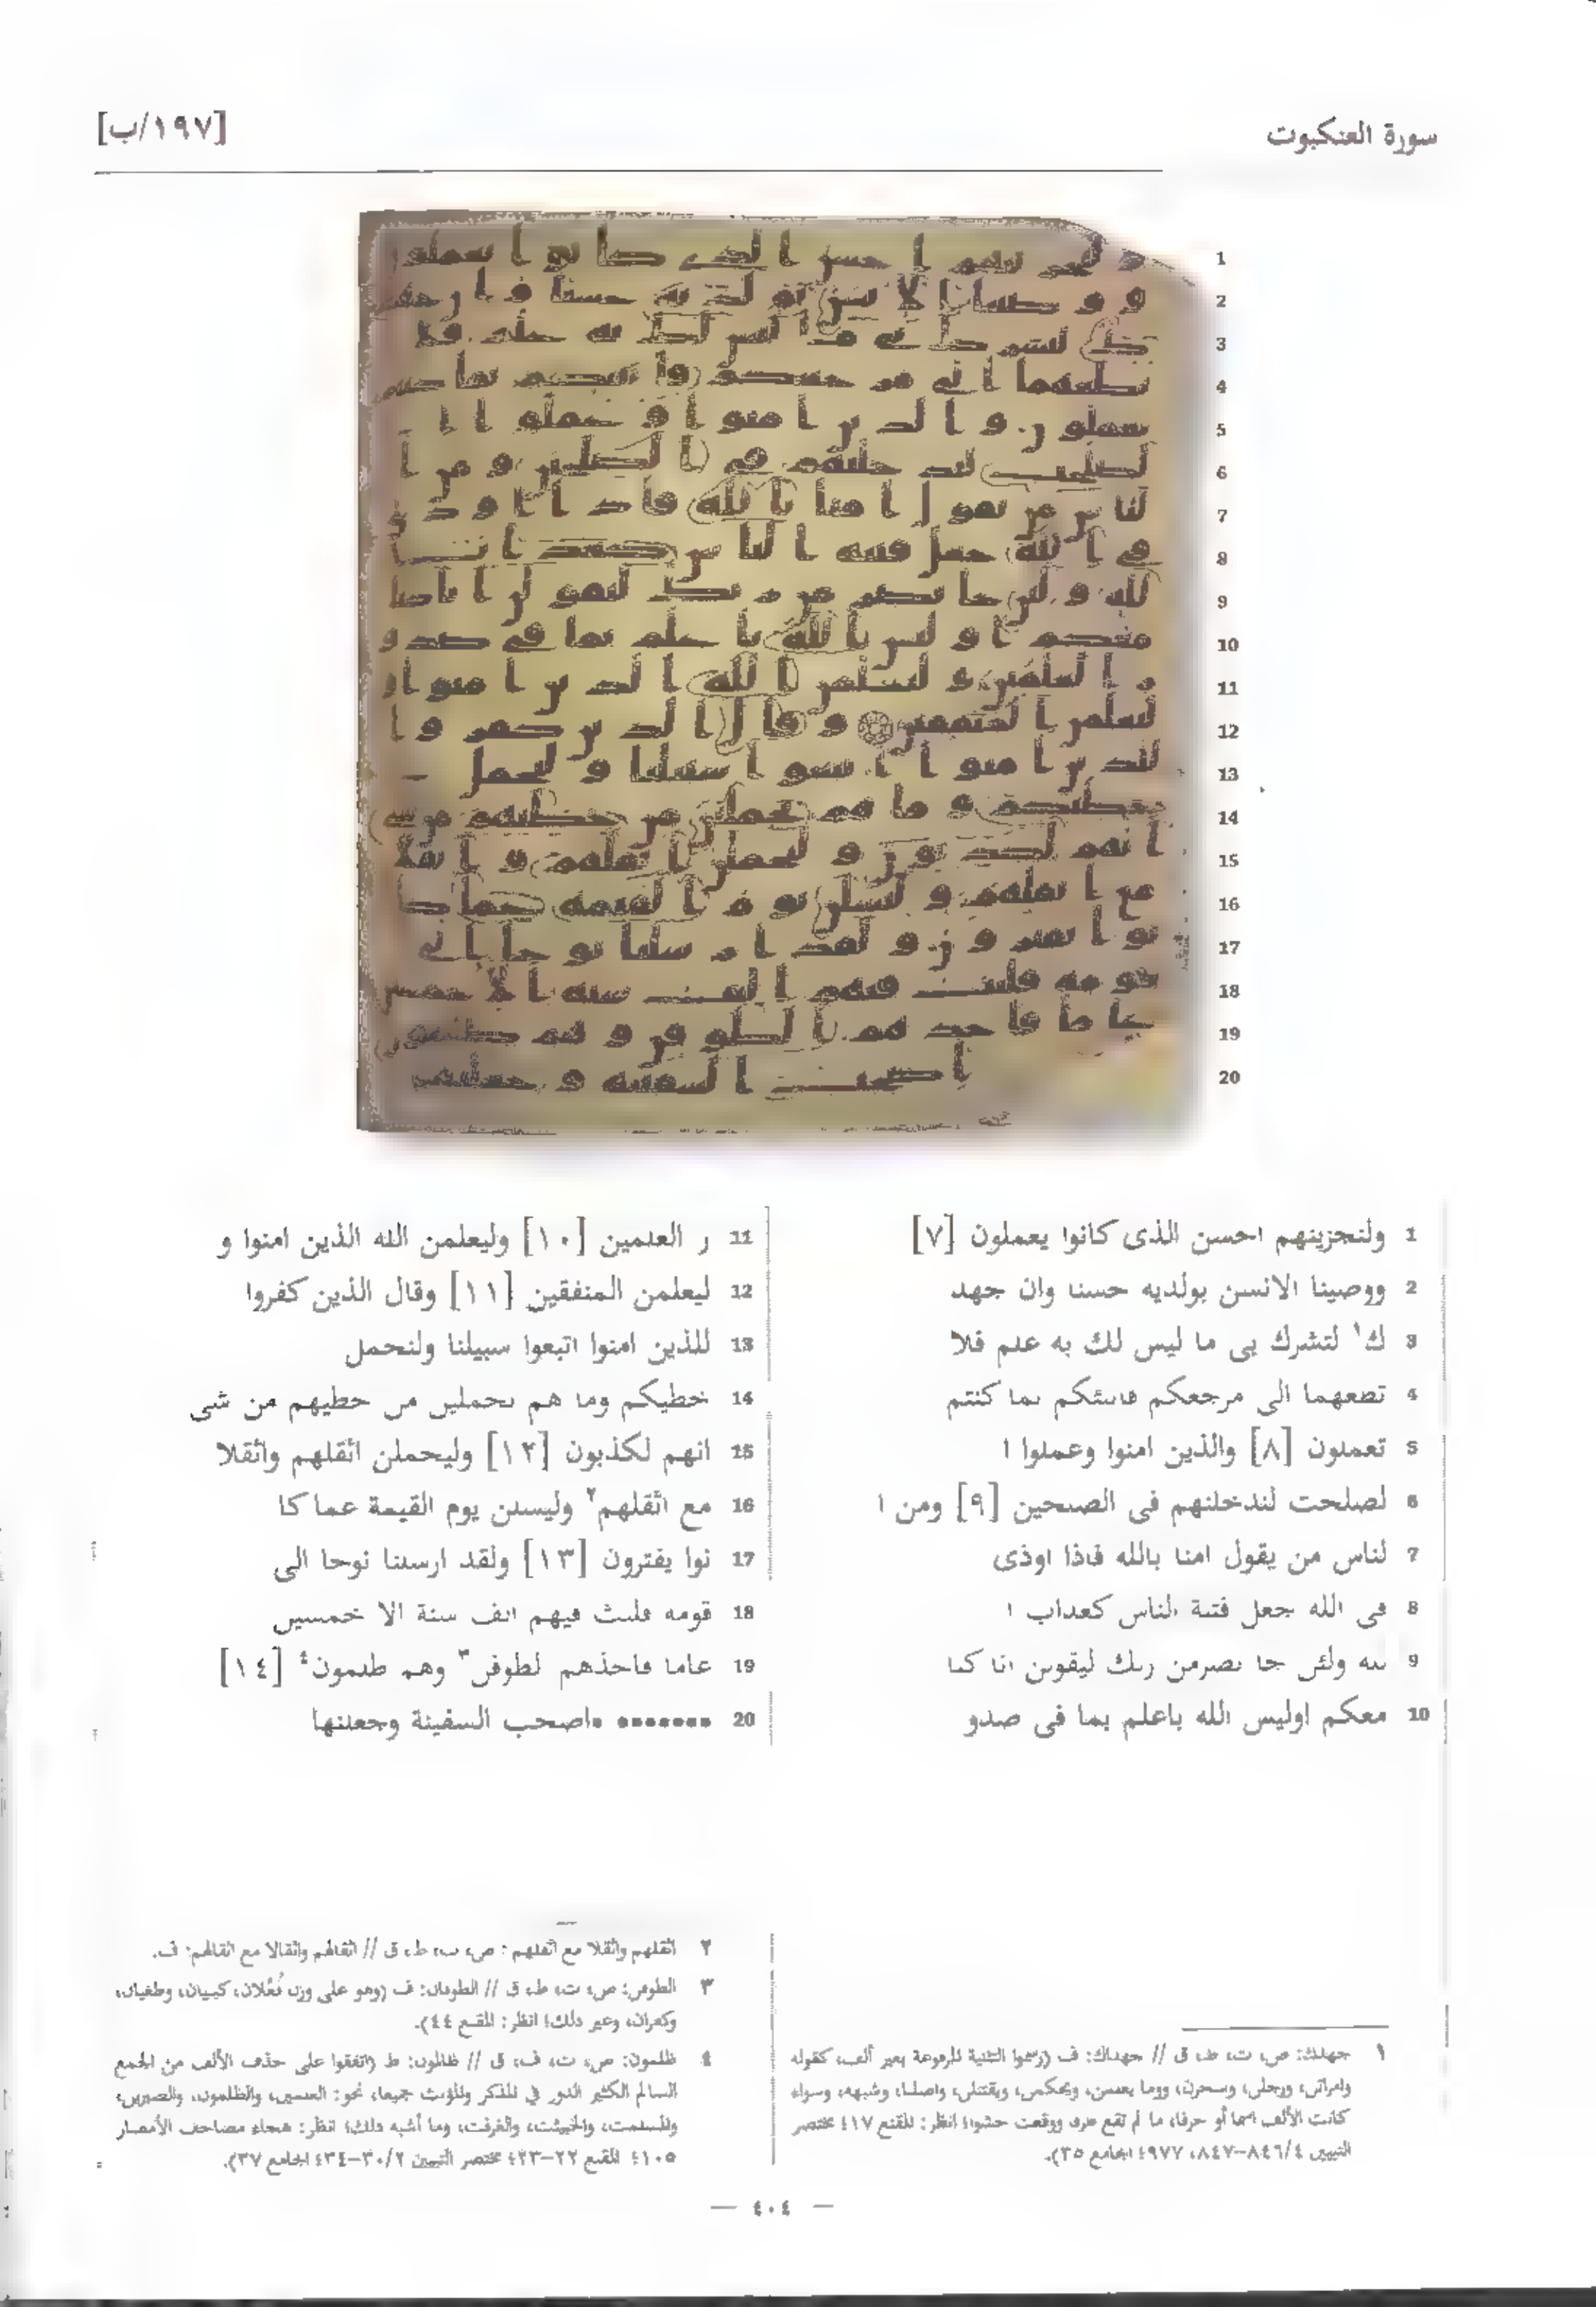 سورة العنكبوت
[١٩٧/ب]
1 ولنجزينهم احسن الذى كانوا يعملون [٧]
2 ووصينا الانسن بولديه حسنا وان جهد
3 ك١ لتشرك بى ما ليس لك به علم فلا
4 تطعهما الى مرجعكم فانبئكم بما كنتم
5 تعملون [٨] والذين امنوا وعملوا ا
6 لصلحت لندخلنهم فى الصلحين [٩] ومن ا
7 لناس من يقول امنا بالله فاذا اوذى
8 فى الله جعل فتنة الناس كعذاب ا
9 لله ولئن جا نصر من ربك ليقولن انا كنا
10 معكم اوليس الله باعلم بما فى صدو
11 ر العلمين [١٠] وليعلمن الله الذين امنوا و
12 ليعلمن المنفقين [١١] وقال الذين كفروا
13 للذين امنوا اتبعوا سبيلنا ولنحمل
14 خطيكم وما هم بحملين من خطيهم من شى
15 انهم لكذبون [١٢] وليحملن اثقلهم واثقلا
16 مع اثقلهم٢ وليسلن يوم القيمة عما كا
17 نوا يفترون [١٣] ولقد ارسلنا نوحا الى
18 قومه فلبث فيهم الف سنة الا خمسين
19 عاما فاخذهم لطوفن٣ وهم ظلمون٤ [١٤]
20 ••••••• واصحب السفينة وجعلنها
١ جهدك: ص، ت، ط، ق // جهداك: ف (رسموا التثنية المرفوعة بغير ألف، كقوله
وامراتن، ورجلن، وسحرن، وما يعلمن، ويحكمن، ويقتتلن، واضلنا، وشبهه، وسواء
كانت الألف اسما أو حرفا، ما لم تقع طرف ووقعت حشوا؛ انظر: المقنع ١٧؛ مختصر
التبيين ٨٤٦/٤-٨٤٧، ٩٧٧؛ الجامع ٣٥).
٢ اثقلهم واثقلا مع اثقلهم: ص، ت، ط، ق // اثقالهم واثقالا مع اثقالهم: ف.
٣ الطوفن: ص، ت، ط، ق // الطوفان: ف (وهو على وزن فُعْلان، كبنيان، وطغيان،
وكفران، وغير ذلك؛ انظر: المقنع ٤٤).
٤ ظلمون: ص، ت، ف، ق // ظالمون: ط (اتفقوا على حذف الألف من الجمع
السالم الكثير الدور في المذكر والمؤنث جميعا، نحو: العلمين، والظلمون، والصبرين،
والمسلمت، والخبيثت، والغرفت، وما أشبه ذلك؛ انظر: هجاء مصاحف الأمصار
١٠٥؛ المقنع ٢٢-٢٣؛ مختصر التبيين ٣٠/٢-٣٤؛ الجامع ٣٧).
— ٤٠٤ —